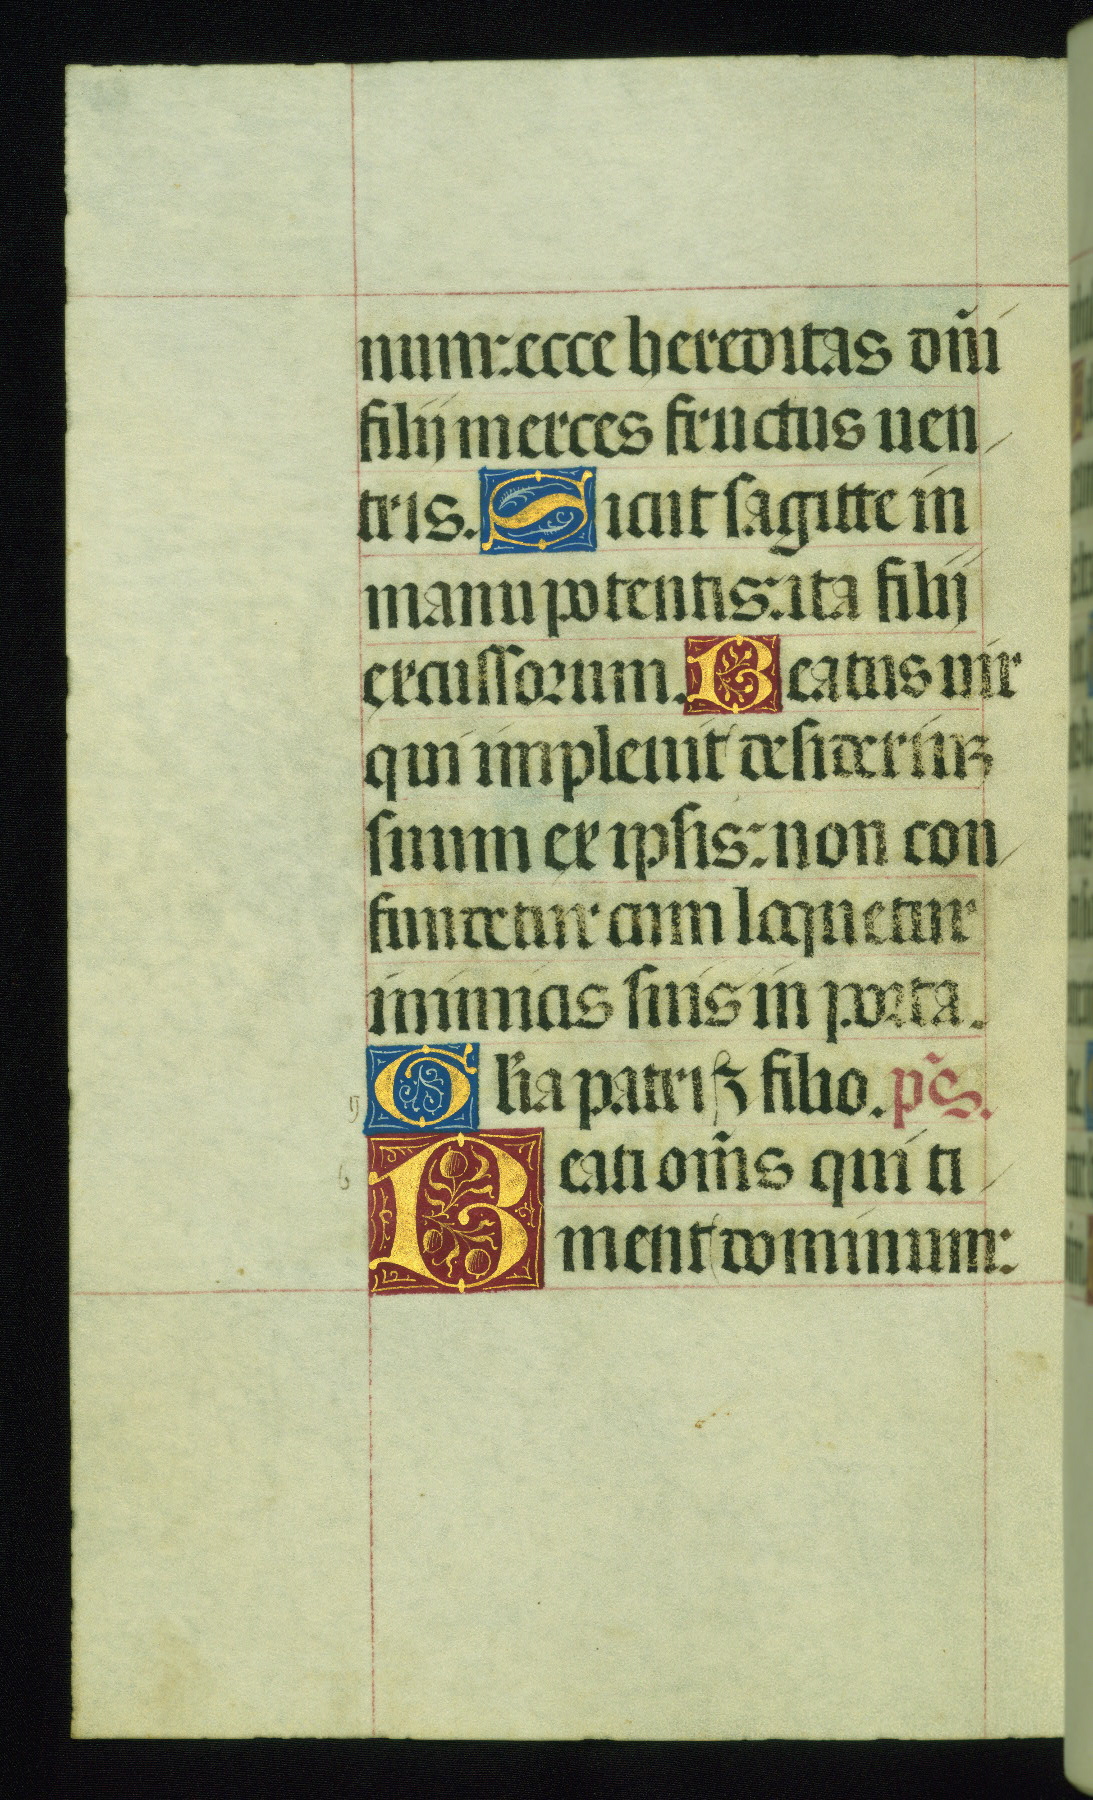 num: ecce hereditas dñi
filij merces fructus uen
tris. Sicut sagitte in
manu potentis: ita filij
excussorum. Beatus uir
qui impleuit desideriuʒ
suum ex ipsis: non con
fundetur cum loquetur
inimicis suis in porta.
Glia patri ⁊ filio. p̃s.
Beati om̃s qui ti
ment dominum: